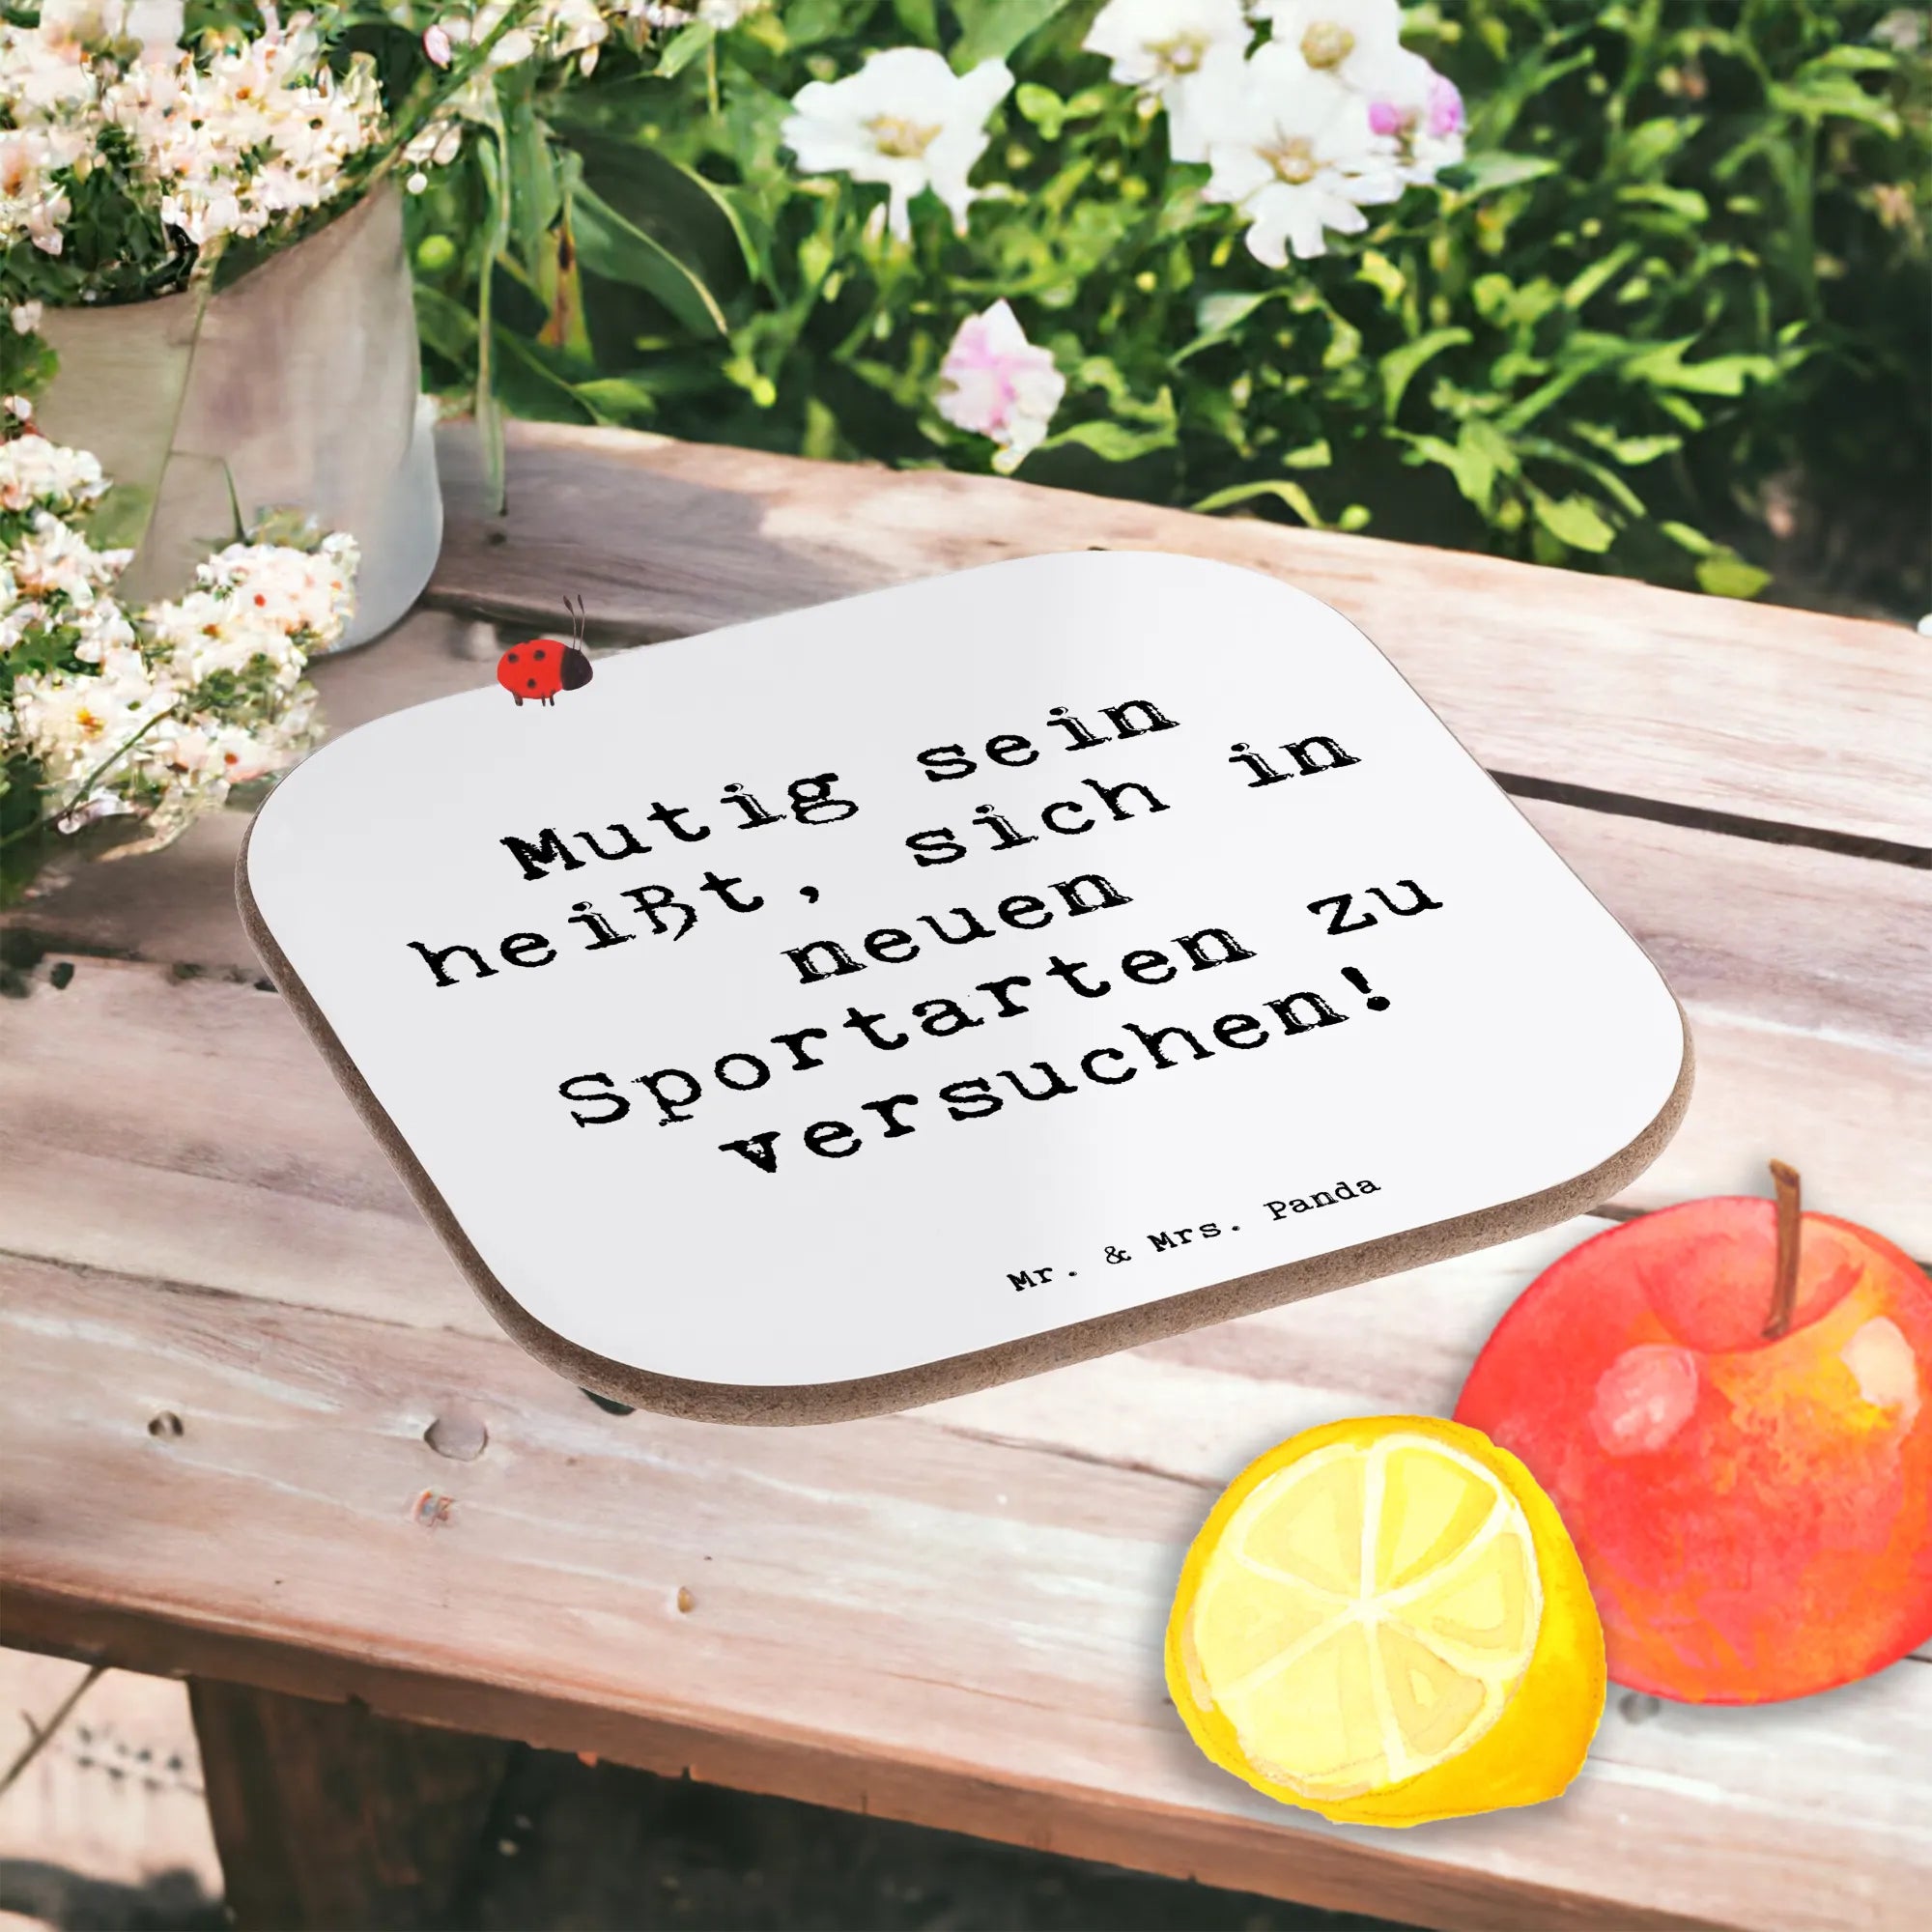 Mutig sein
heißt, sich in
neuen
Sportarten zu
versuchen!
Mr. & Mrs. Panda